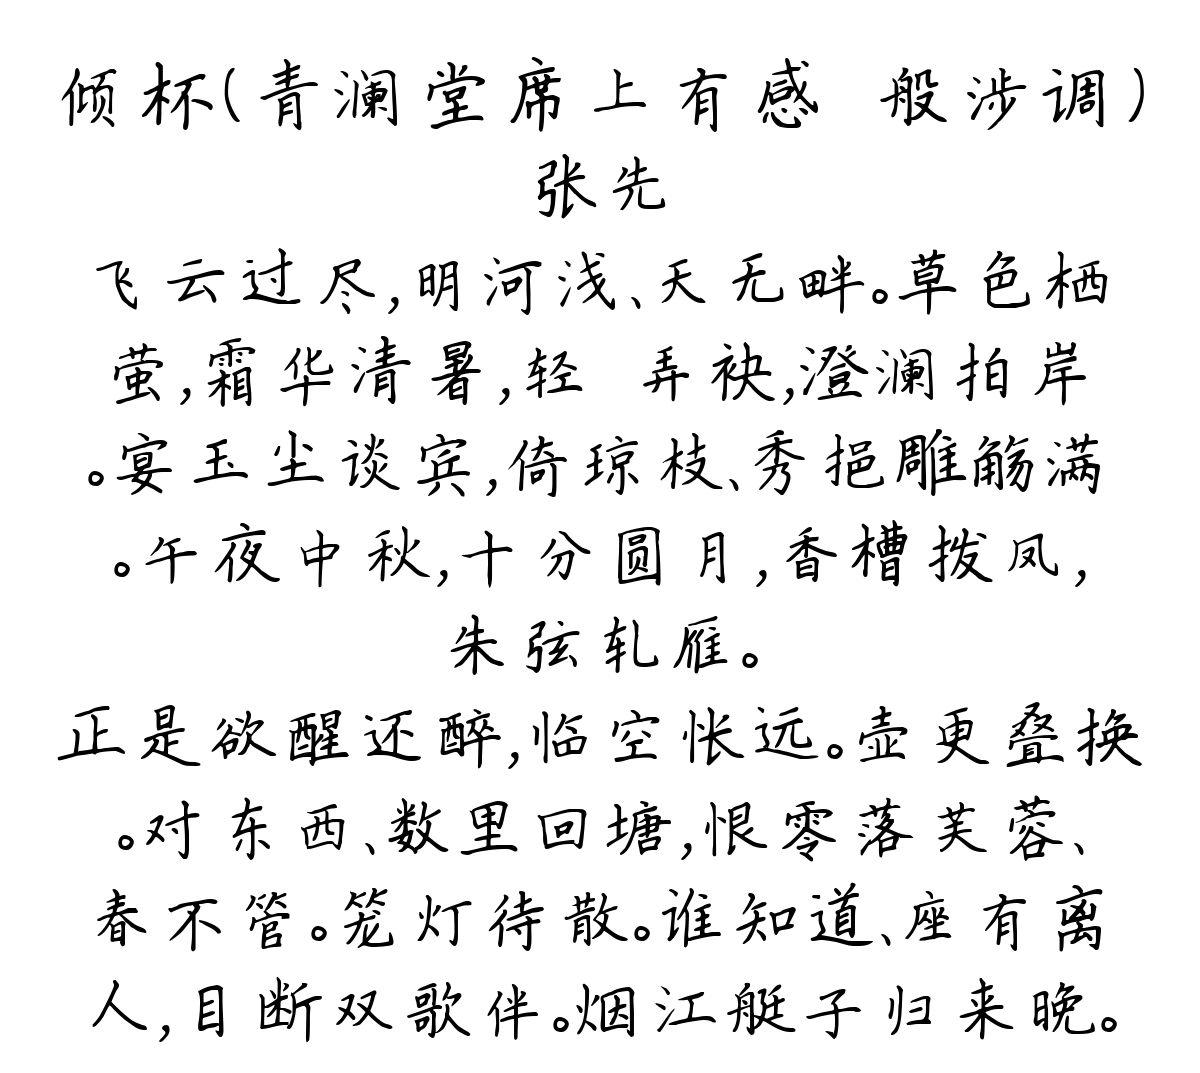 倾杯(青澜堂席上有感 般涉调)
张先
飞云过尽,明河浅、天无畔。草色栖
萤,霜华清暑,轻 弄袂,澄澜拍岸
。宴玉尘谈宾,倚琼枝、秀挹雕觞满
。午夜中秋,十分圆月,香槽拨凤,
朱弦轧雁。
正是欲醒还醉,临空怅远。壶更叠换
。对东西、数里回塘,恨零落芙蓉、
春不管。笼灯待散。谁知道、座有离
人,目断双歌伴。烟江艇子归来晚。